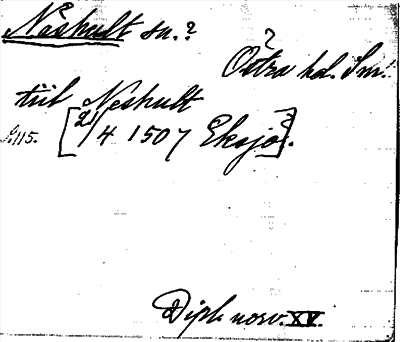 Näshult sn.?
?
Östra hd. Sm.
til Neshult
S. 115. [2/4 1507 Eksjö].
Dipl. norv. XV.